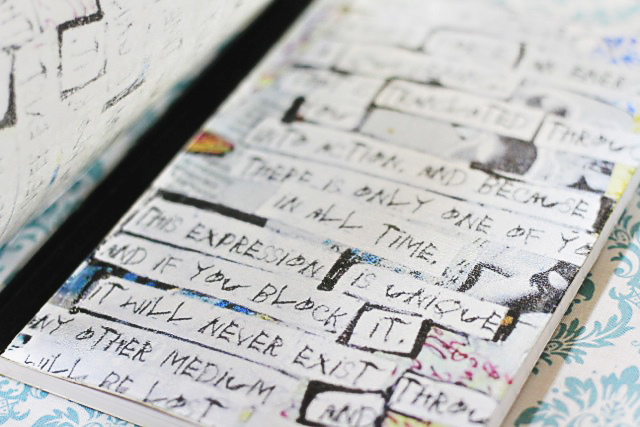 TRANSLATED THROU
INTO ACTION. AND BECAUSE
THERE IS ONLY ONE OF YO
IN ALL TIME,
THIS EXPRESSION IS UNIQUE
AND IF YOU BLOCK IT.
IT WILL NEVER EXIST THROU
NY OTHER MEDIUM AND
WILL BE LOST